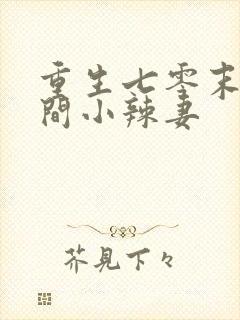 重生七零末
间小辣妻
芥見下々